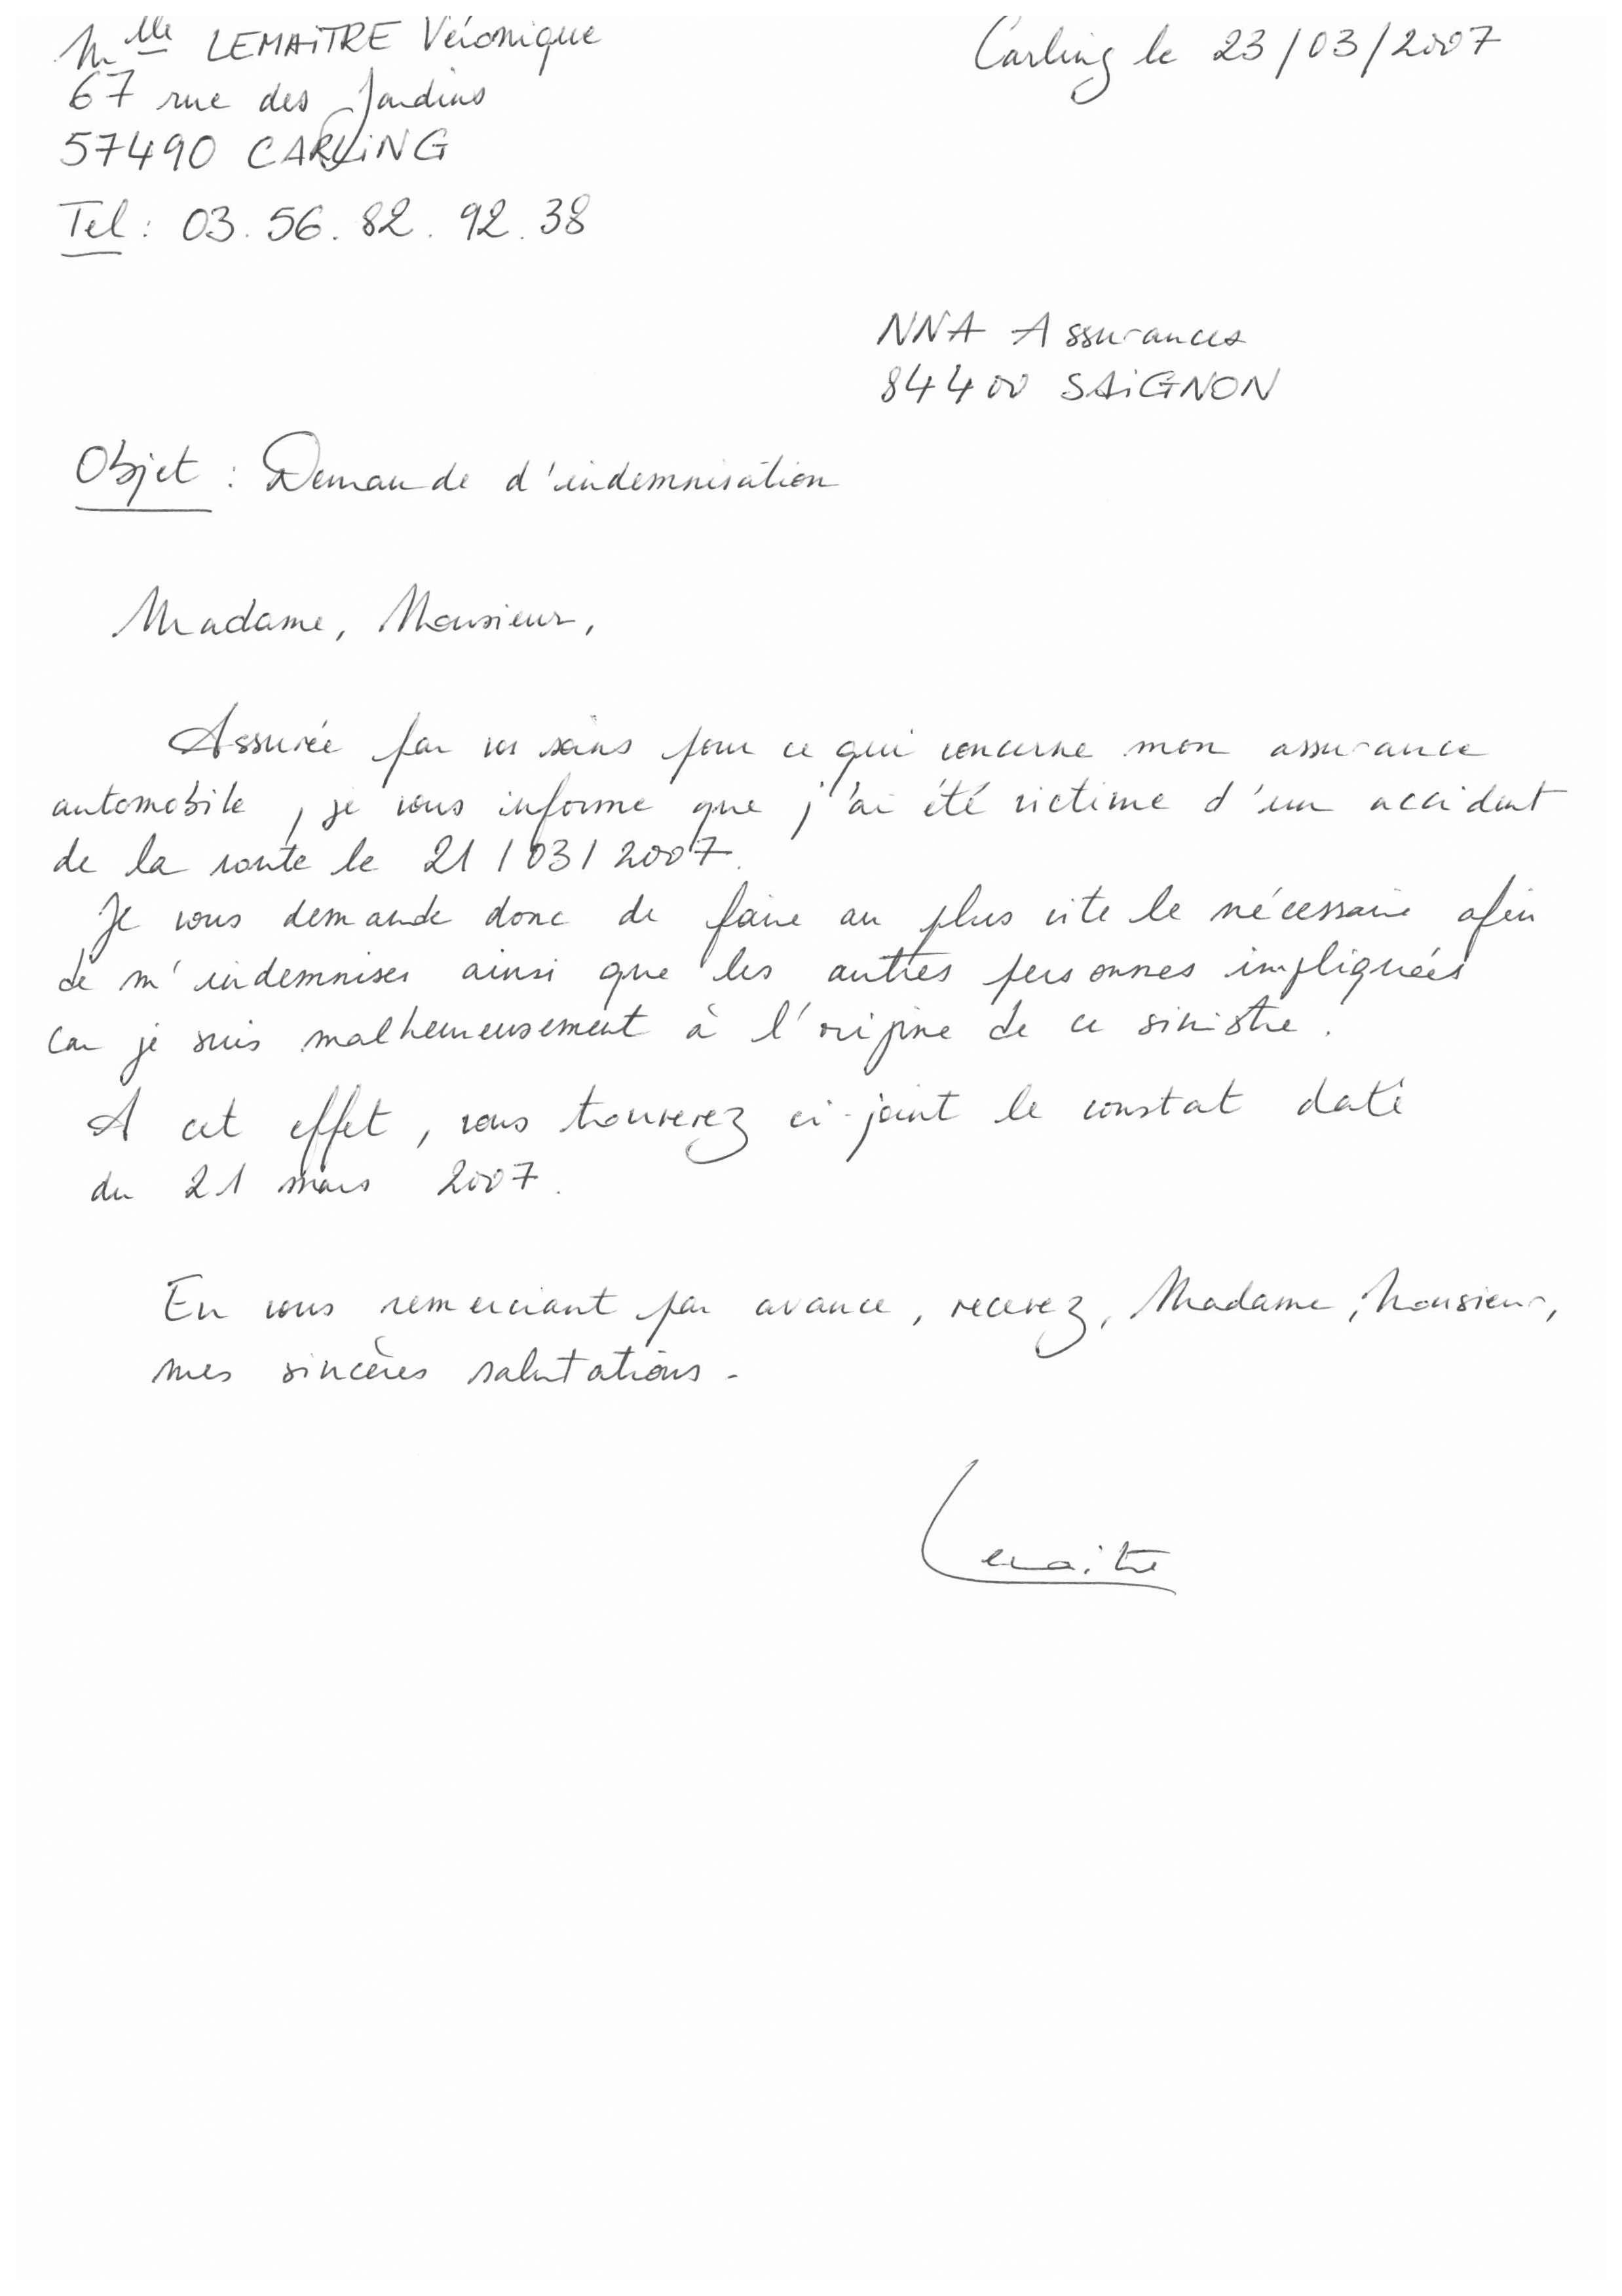 Mlle LEMAITRE Véronique
Carling le 23/03/2007
67 rue des Jardins
57490 CARLING
Tel : 03.56.82.92.38
NNA Assurances
84400 SAIGNON
Objet : Demande d'indemnisation
Madame, Monsieur,
Assurée par vos soins pour ce qui concerne mon assurance
automobile, je vous informe que j'ai été victime d'un accident
de la route le 21/03/2007.
Je vous demande donc de faire au plus vite le nécessaire afin
de m'indemniser ainsi que les autres personnes impliquées
car je suis malheureusement à l'origine de ce sinistre.
A cet effet, vous trouverez ci-joint le constat daté
du 21 mars 2007.
En vous remerciant par avance, recevez, Madame, Monsieur,
mes sincères salutations.
Lemaitre